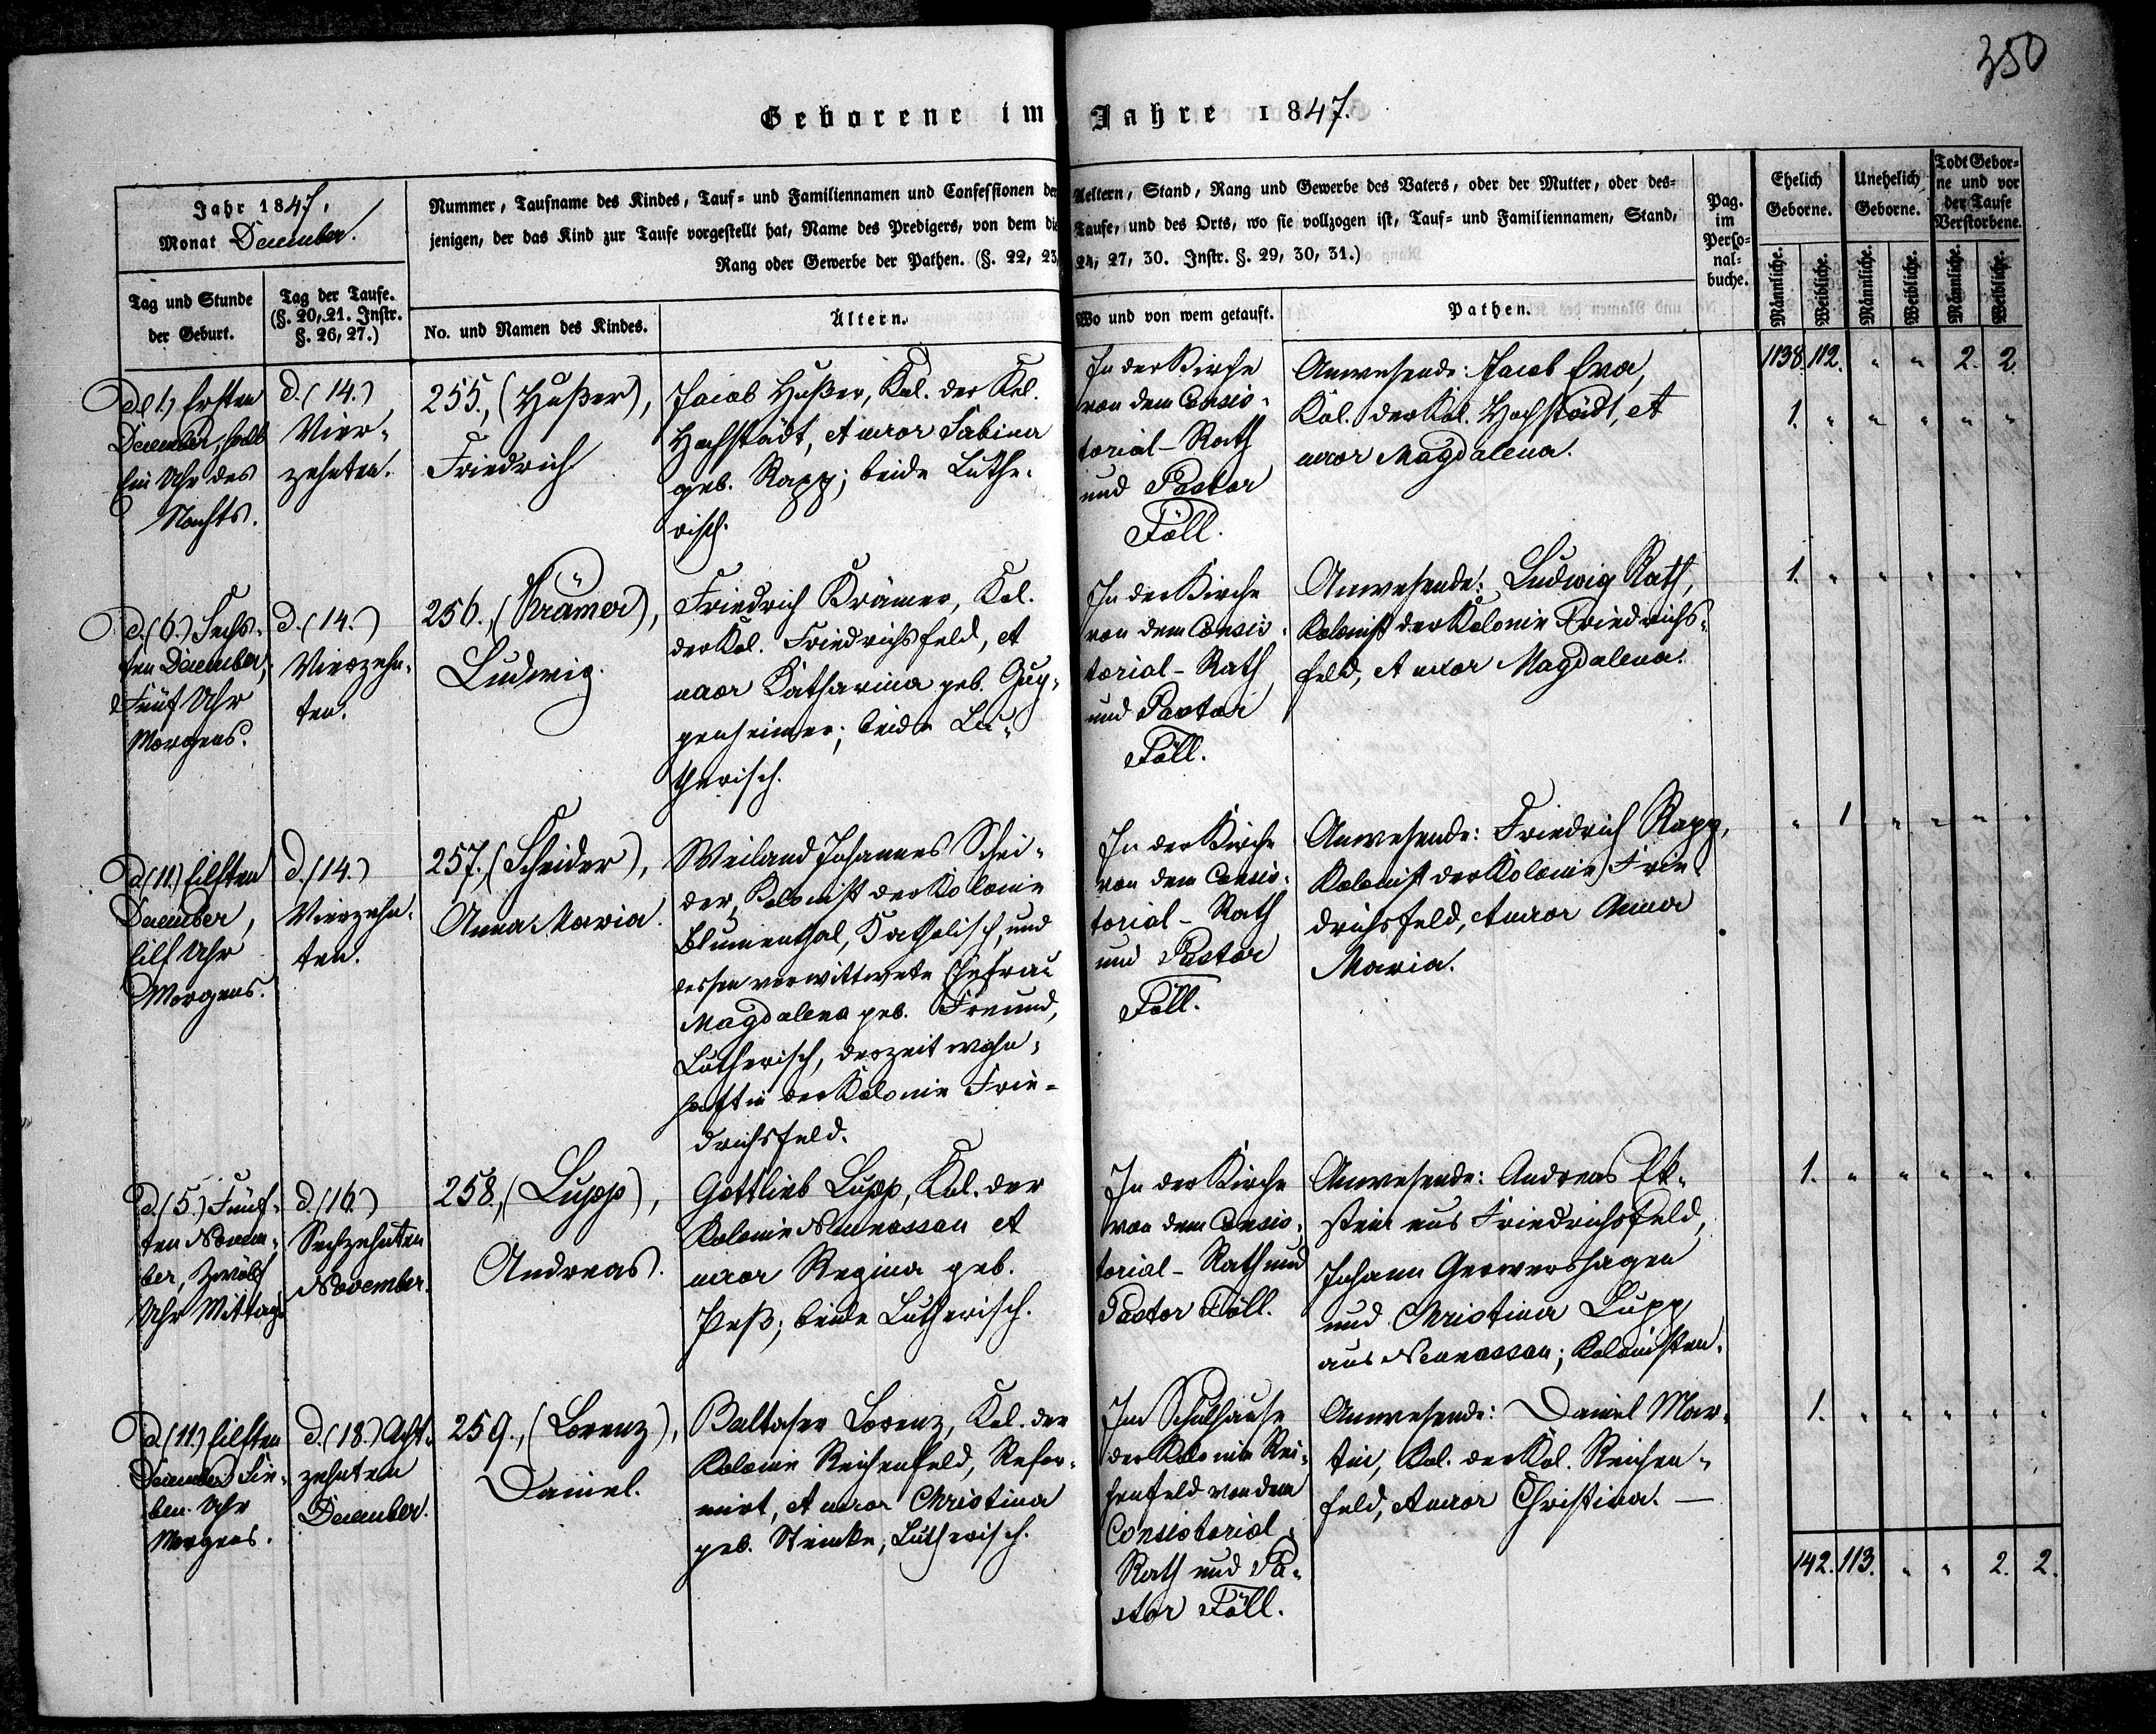 350
Geborene im Jahre 1847.
Jahr 1847,
Monat December.
Nummer, Taufname des Kindes, Tauf- und Familiennamen und Confessionen der Aeltern, Stand, Rang und Gewerbe des Vaters, oder der Mutter, oder des-
jenigen, der das Kind zur Taufe vorgestellt hat, Name des Predigers, von dem die Taufe, und des Orts, wo sie vollzogen ist, Tauf- und Familiennamen, Stand,
Rang oder Gewerbe der Pathen. (§. 22, 23, 24, 27, 30. Instr. §. 29, 30, 31.)
Pag.
im
Perso-
nal-
buche.
Ehelich
Geborne.
Unehelich
Geborne.
Todt Gebor-
ne und vor
der Taufe
Verstorbene.
Männliche.
Weibliche.
Männliche.
Weibliche.
Männliche.
Weibliche.
Tag und Stunde
der Geburt.
Tag der Taufe.
(§. 20, 21. Instr.
§. 26, 27.)
No. und Namen des Kindes.
Ältern.
Wo und von wem getauft.
Pathen.
1138. 112. " " 2. 2.
d. (1.) Ersten
December, halb
Ein Uhr des
Nachts.
d. (14.)
Vier-
zehnten.
255., (Hußer),
Friedrich
Jacob Hußer, Kol. der Kol.
Hochstädt, et uxor Sabina
geb. Rapp; beide Luthe-
risch.
In der Kirche
von dem Consis-
torial-Rath
und Pastor
Föll.
Anwesende: Jacob Eva,
Kol. der Kol. Hochstädt, et
uxor Magdalena.
1. " " " " "
d. (6.) Sechs-
ten December,
Fünf Uhr
Morgens.
d. (14.)
Vierzehn-
ten.
256., (Krämer),
Ludwig.
Friedrich Krämer, Kol.
der Kol. Friedrichsfeld, et
uxor Katharina geb. Gug-
genheimer; beide Lu-
therisch.
In der Kirche
von dem Consis-
torial-Rath
und Pastor
Föll.
Anwesende: Ludwig Rath,
Kolonist der Kolonie Friedrichs-
feld, et uxor Magdalena.
1. " " " " "
d. (11.) Eilften
December,
Eilf Uhr
Morgens.
d. (14.)
Vierzehn-
ten.
257., (Scheider),
Anna Maria.
Weiland Johannes Schei-
der, Kolonist der Kolonie
Blumenthal, Katholisch, und
dessen verwittwete Ehefrau
Magdalena geb. Freund,
Lutherisch, derzeit wohn-
haft in der Kolonie Frie-
drichsfeld.
In der Kirche
von dem Consis-
torial-Rath
und Pastor
Föll.
Anwesende: Friedrich Rapp,
Kolonist der Kolonie Frie-
drichsfeld, et uxor Anna
Maria.
" 1 " " " "
d. (5.) Fünf-
ten Novem-
ber, Zwölf
Uhr Mittags
d. (16.)
Sechzehnten
November.
258., (Lupp),
Andreas.
Gottlieb Lupp, Kol. der
Kolonie Neunassau et
uxor Regina geb.
Heß; beide Lutherisch.
In der Kirche
von dem Consis-
torial-Rath und
Pastor Föll.
Anwesende: Andreas Ek-
stein aus Friedrichsfeld,
Johann Gerwershagen
und Christina Lupp
aus Neunassau; Kolonisten.
1. " " " " "
d. (11.) Eilften
December Sie-
ben Uhr
Morgens.
d. (18.) Acht-
zehnten
December.
259., (Lorenz),
Daniel.
Baltaser Lorenz, Kol. der
Kolonie Reichenfeld, Refor-
mirt, et uxor Christina
geb. Steinke, Lutherisch.
Im Schulhause
der Kolonie Rei-
chenfeld von dem
Consistorial-
Rath und Pa-
stor Föll.
Anwesende: Daniel Mar-
tin, Kol. der Kol. Reichen-
feld, et uxor Christina. —
1. " " " " "
142. 113. " " 2. 2.